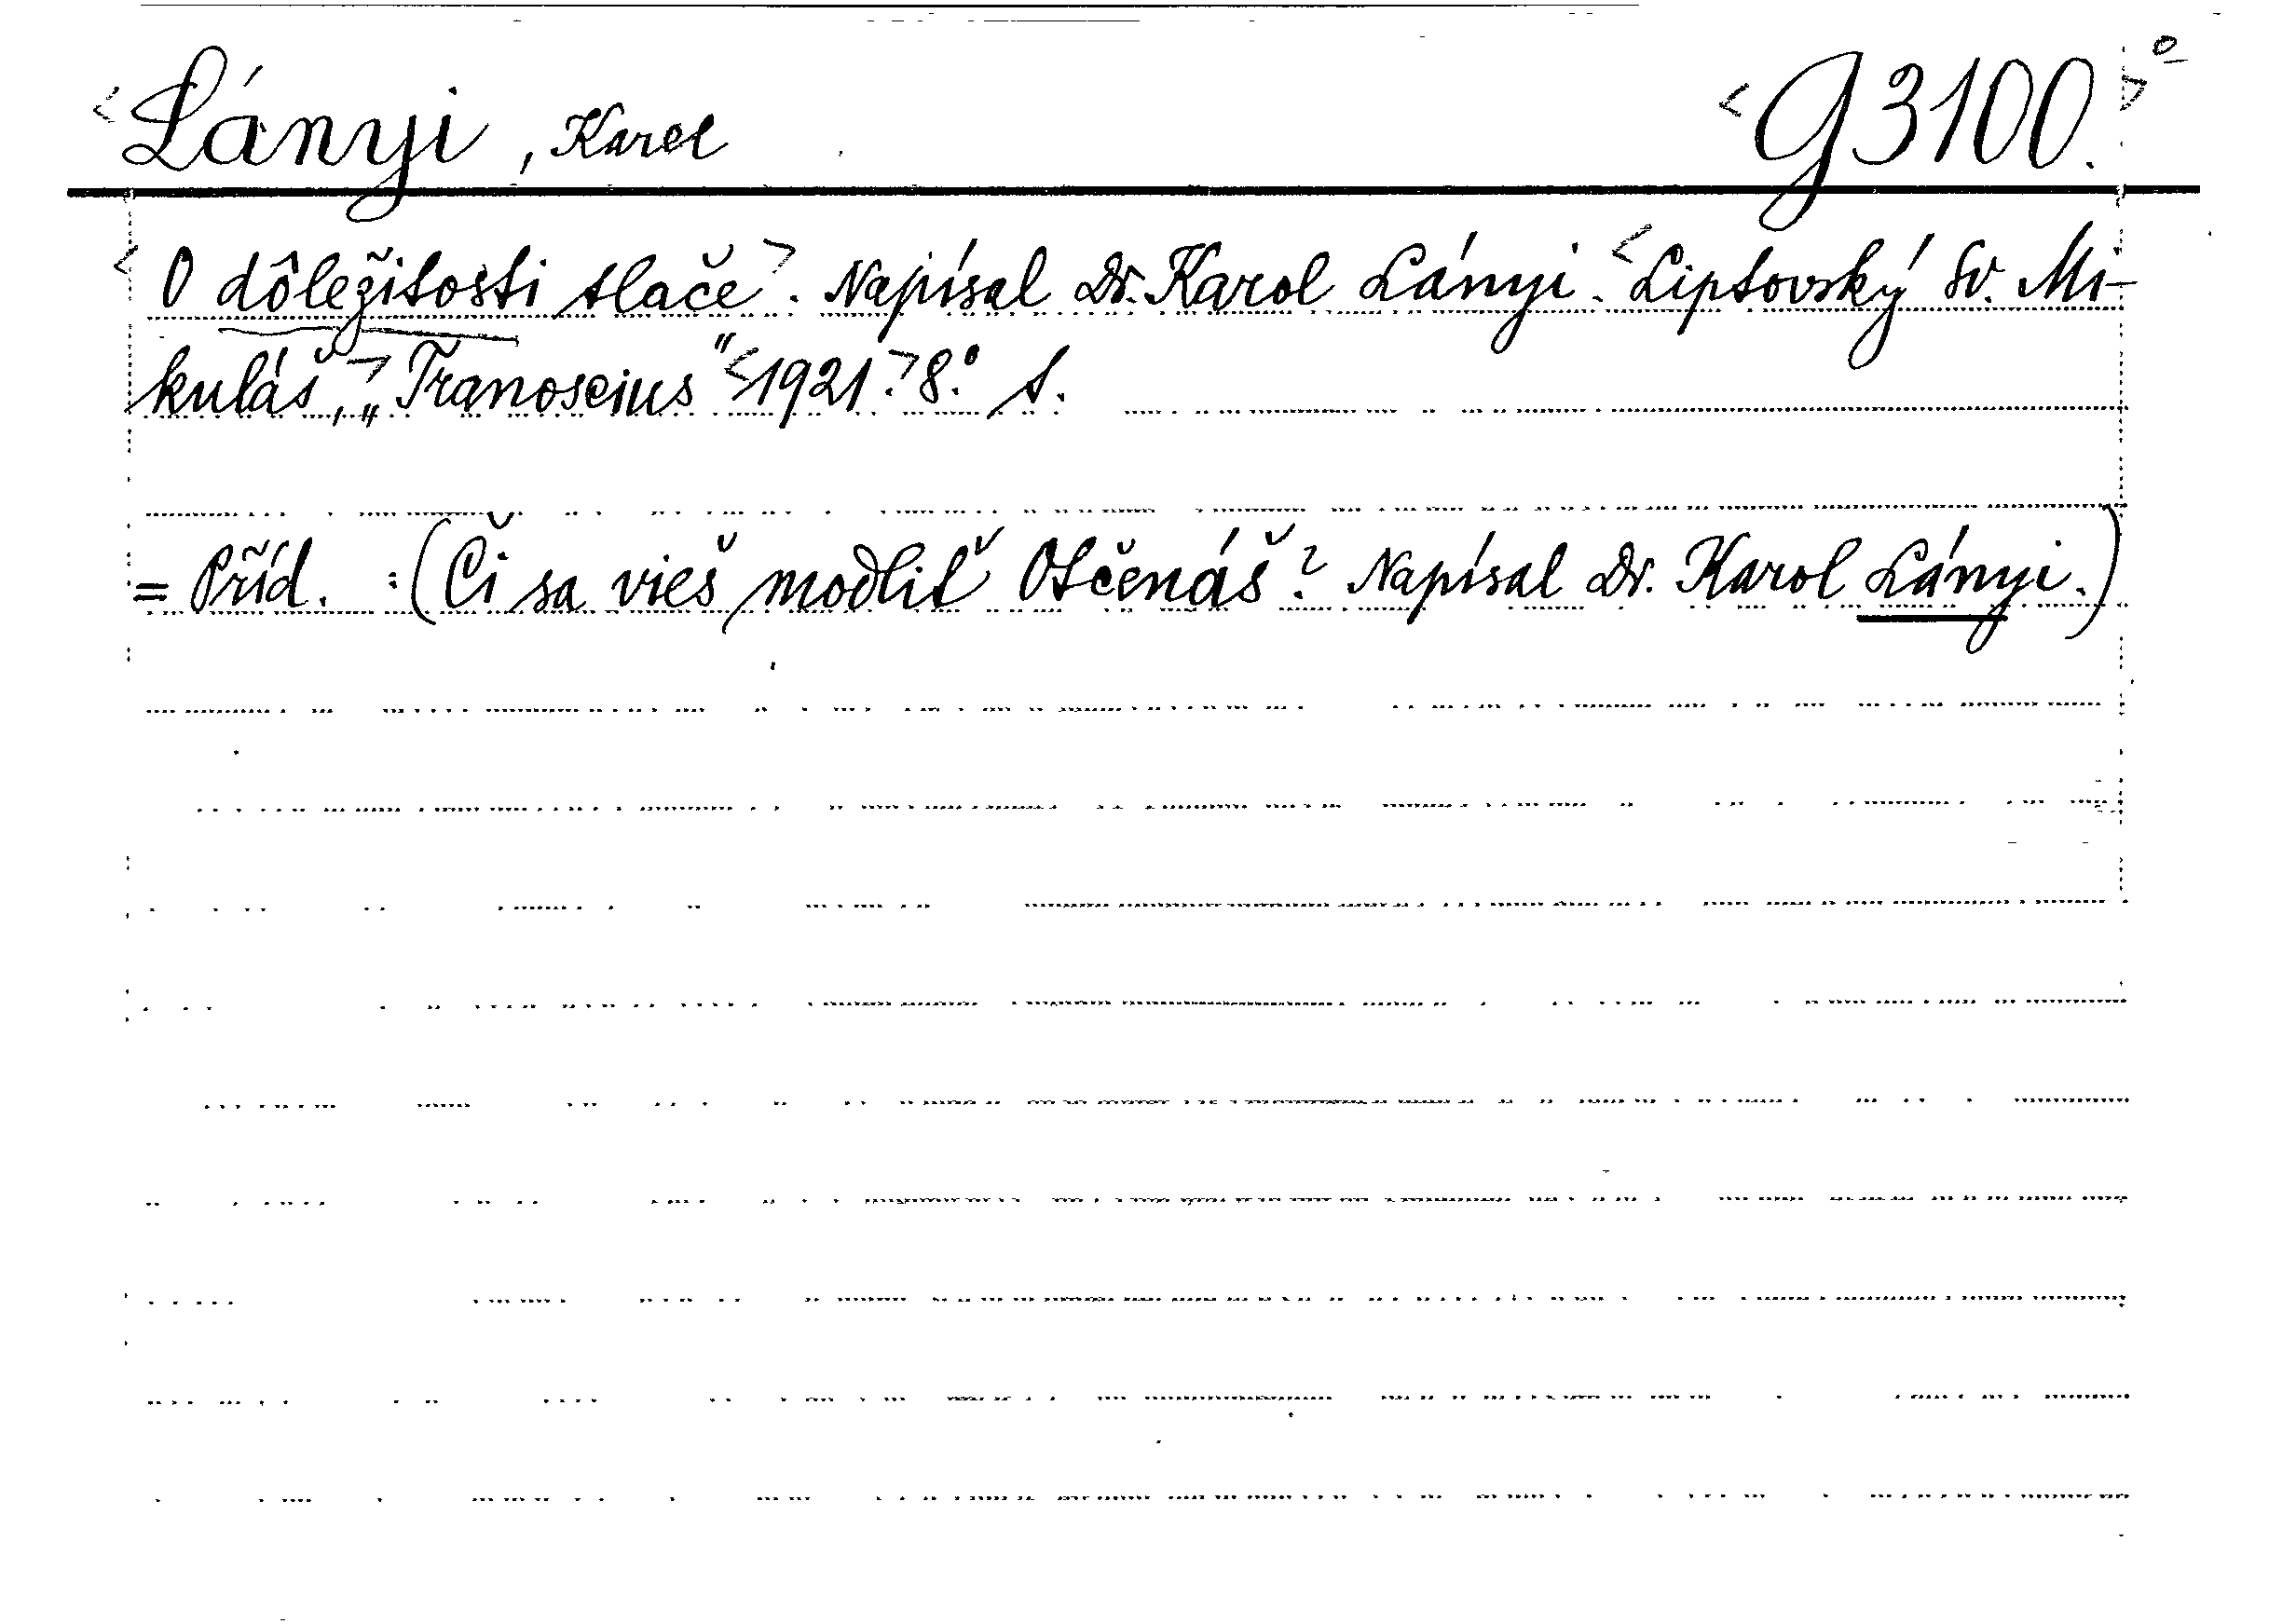 <Lányi, Karel <G 3100.>º
<O dôležitosti tlače>. Napísal Dr. Karol Lányi. <Liptovský Sv. Mi-
kuláš,> „Tranoscius" <1921.> 8.º s.
= Příd. : (Či sa vieš modliť Otčenáš? Napísal Dr. Karol Lányi.)